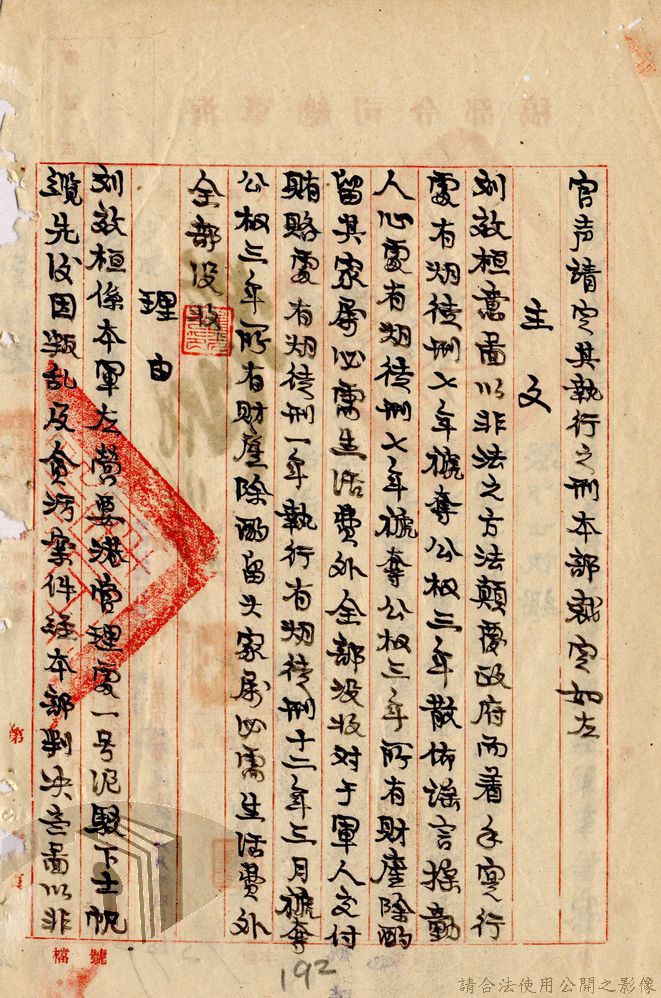 官声請定其执行之刑本部裁定如左
主文
刘效桓意图以非法之方法顛覆政府而着手实行
處有期徒刑七年褫奪公权三年散佈謠言摇動
人心處有期徒刑七年褫奪公权三年所有財產除酌
留其家屬必需生活費外全部没收对于軍人交付
賄賂處有期徒刑一年執行有期徒刑十二年三月褫奪
公权三年所有財產除酌留其家屬必需生活費外
全部没收
理由
刘效桓係本軍左營要港管理處一号泥駁下士帆
纜先後因叛乱及貪污案件經本部判决意图以非
第
頁
檔號
192
請合法使用公開之影像